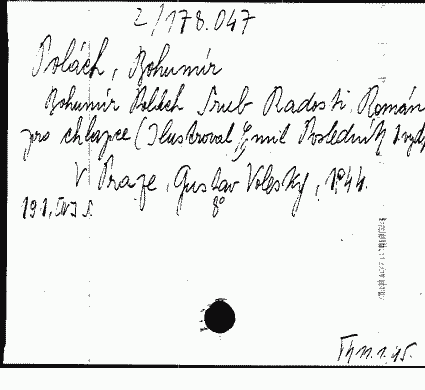 2/178.047
Polách, Bohumír
Bohumír Polách Srub Radosti, Román
pro chlapce (Ilustroval Emil Posledník 1.vyd
V Praze, Gustav Voleský, 1944.
191, [1] s. 8°
Th 11.1.45.